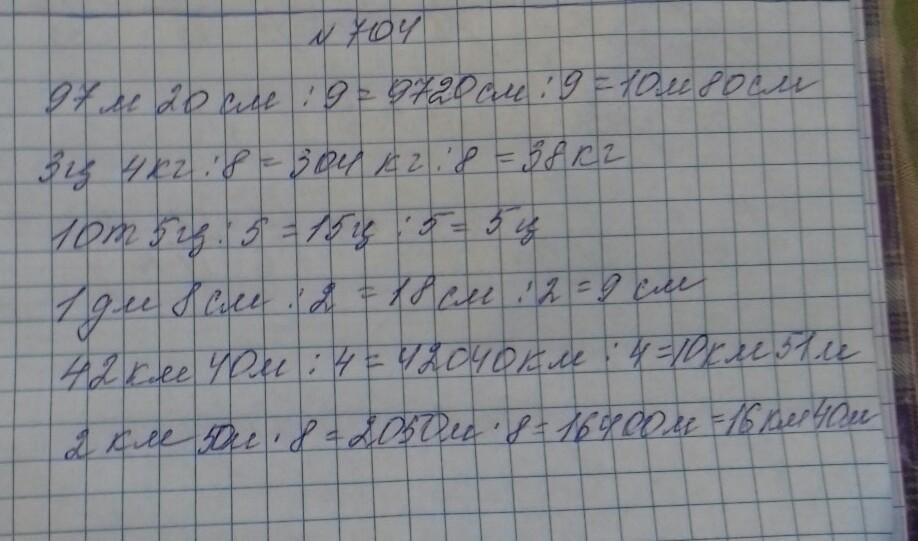 № 704
97 м 20 см : 9 = 9720 см : 9 = 10 м 80 см
3 ц 4 кг : 8 = 304 кг : 8 = 38 кг
10 т 5 ц : 5 = 15 ц : 5 = 5 ц
1 дм 8 см : 2 = 18 см : 2 = 9 см
42 км 40 м : 4 = 42040 км : 4 = 10 км 51 м
2 км 50 м · 8 = 2050 м · 8 = 16400 м = 16 км 40 м